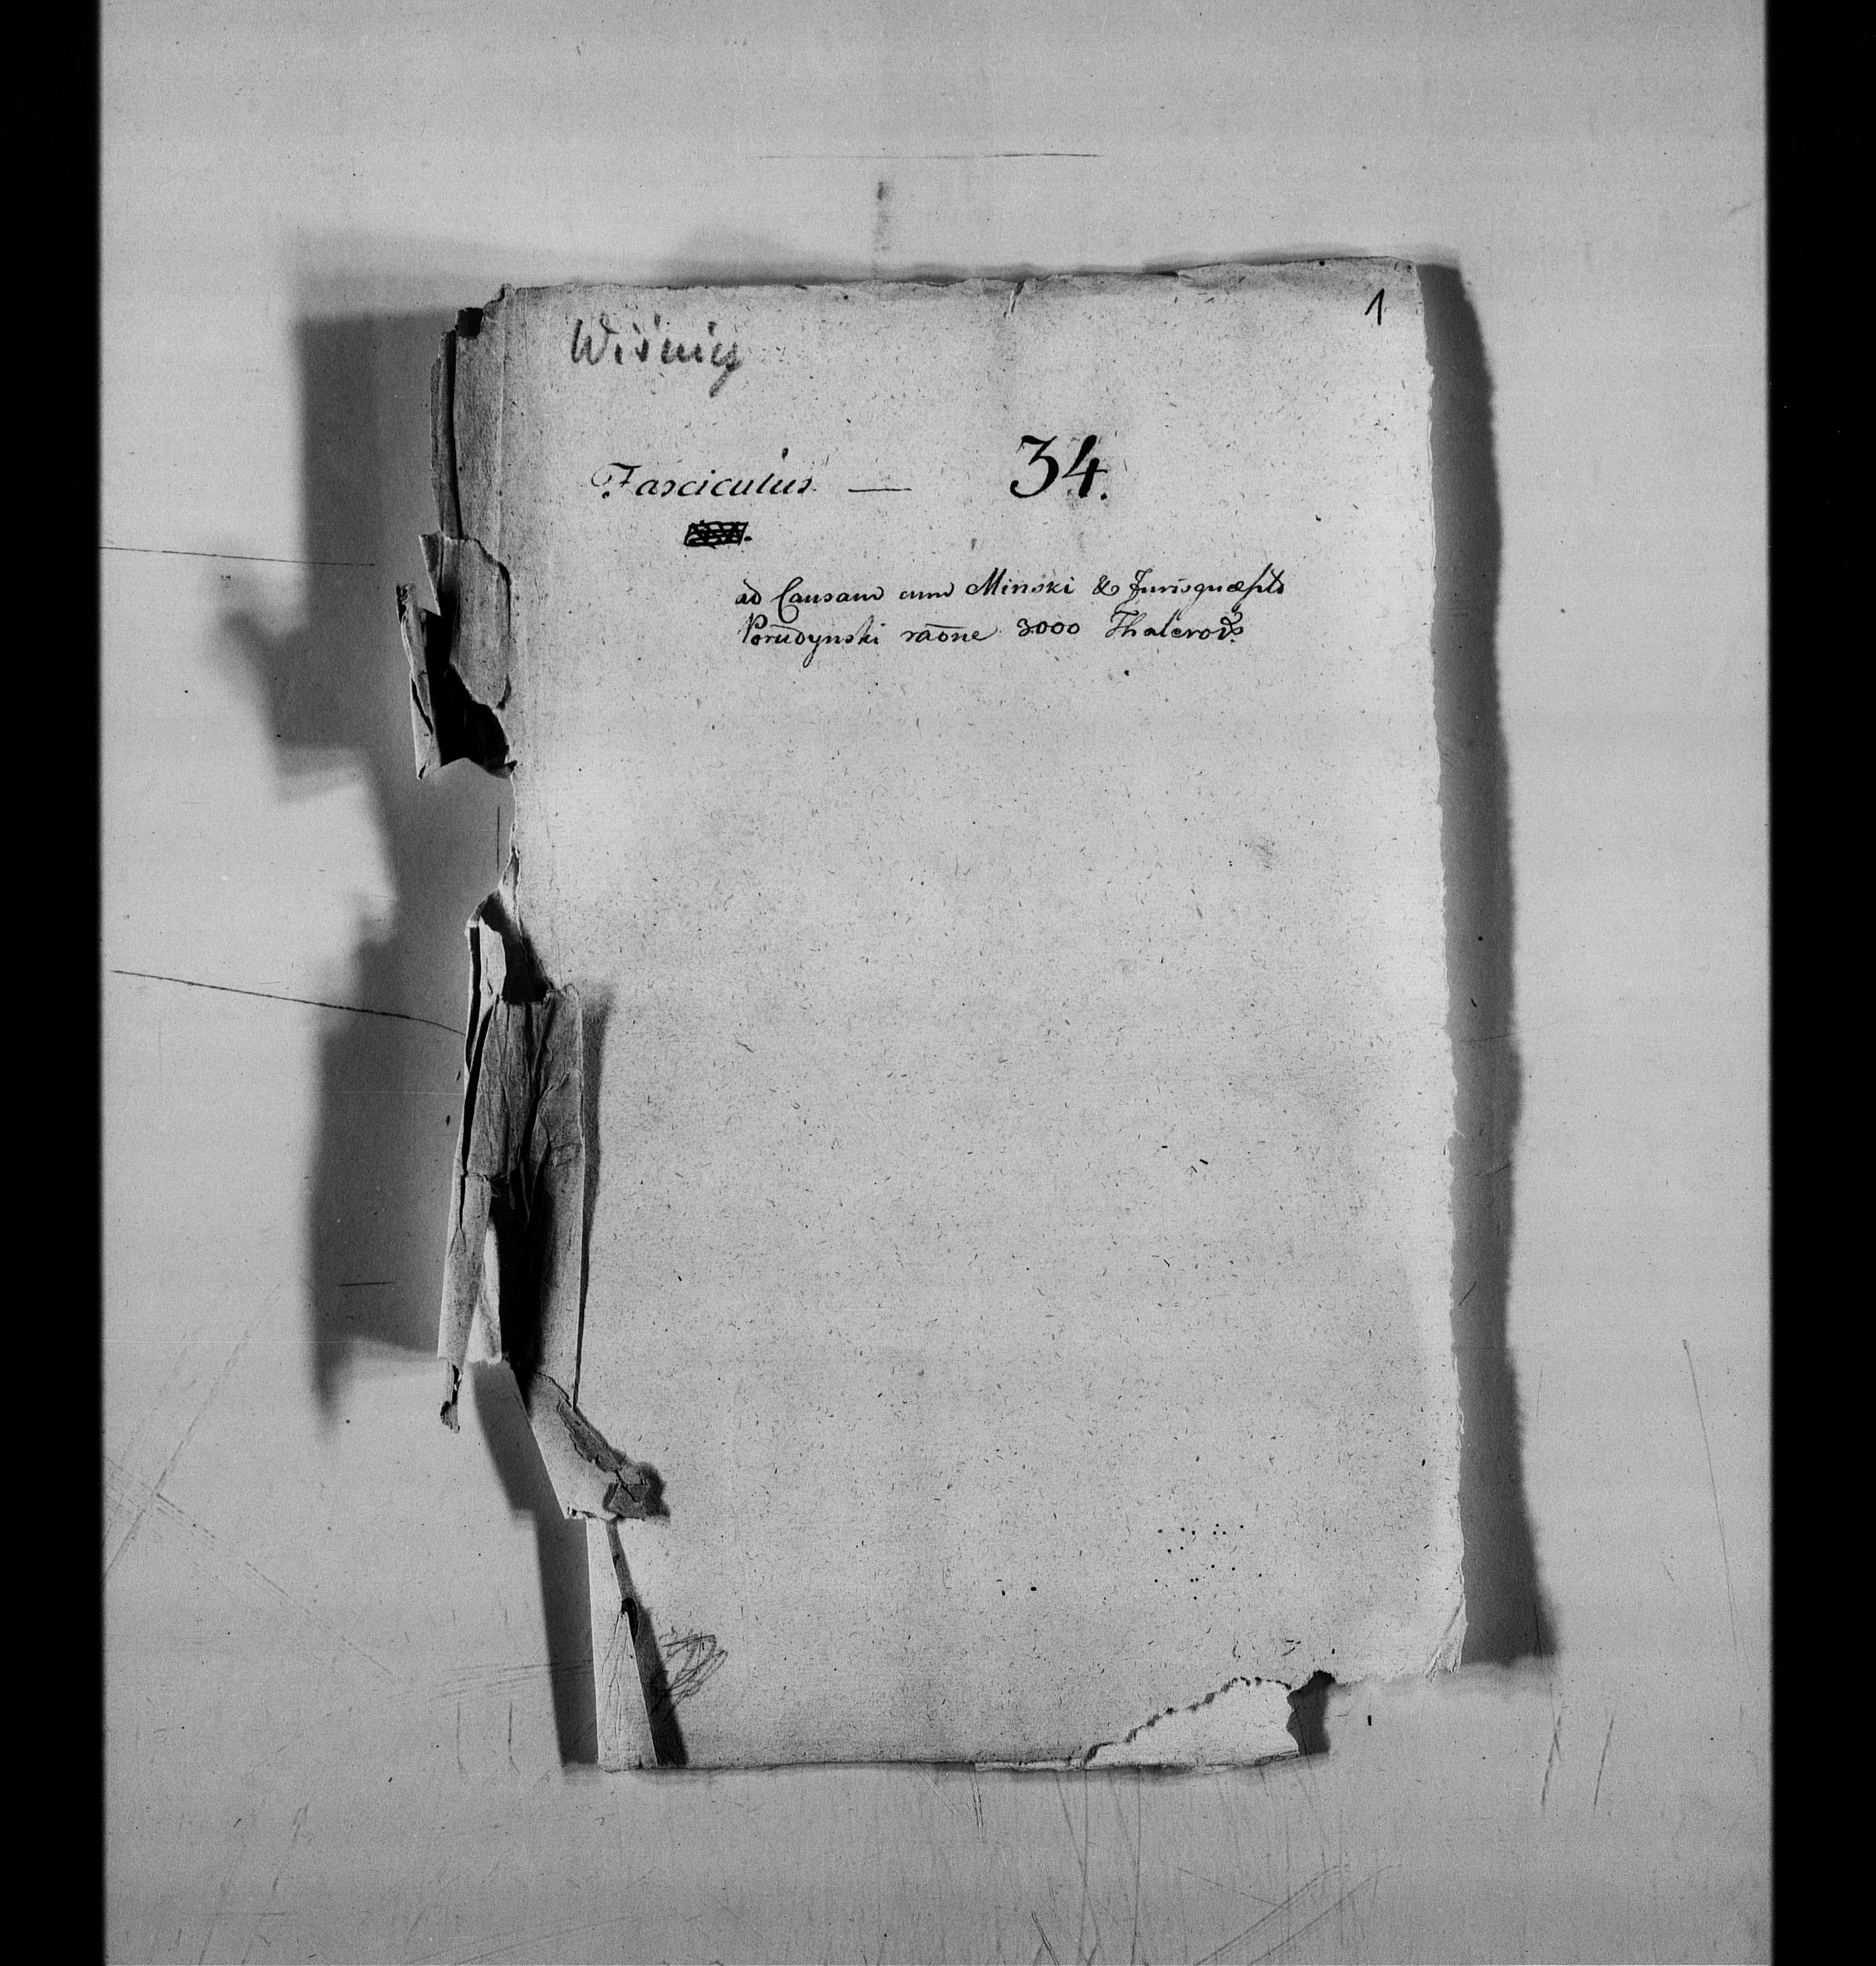 1
Wiśnicz
Fasciculus — 34.
ad Causam cum Minski & Jurisquæsito
Porudynski raõne 3000 Thaleror̃